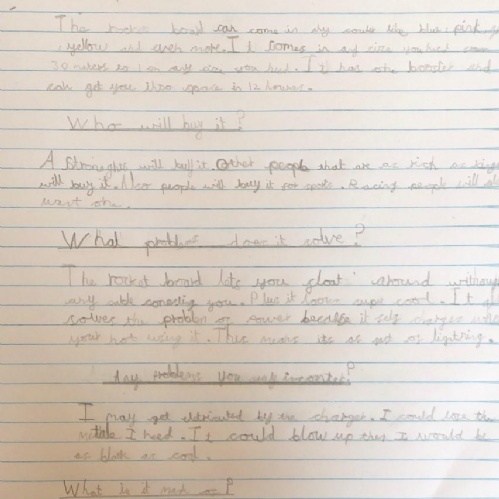 The rocket board can come in any couler like blue, pink,
yellow and even more. It comes in any size you need from
30 meters to 1 cm any size you need. It has one booster and
can get you into space in 12 houres.
Who will buy it?
A Stronghts will buy it. Other people that are as rich as
will buy it. Also people will buy it for . Racing people will
want one.
What problems does it solve?
The rocket board lets you float around without
any cable you. Plus it looks supe cool. It
solves the problem of power because it self charges
your not using it. This means its as fast as lightning.
Any problems you may
I may get by the charger. I could the
I need. It could blow up then I would be
as black as coal.
What is it